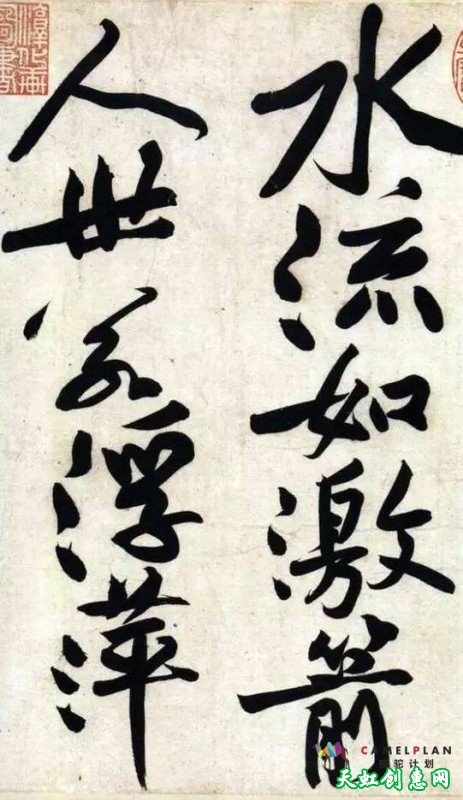 水流如激箭
人世若浮萍
CAMELPLAN
骆驼计划
天虹创惠网